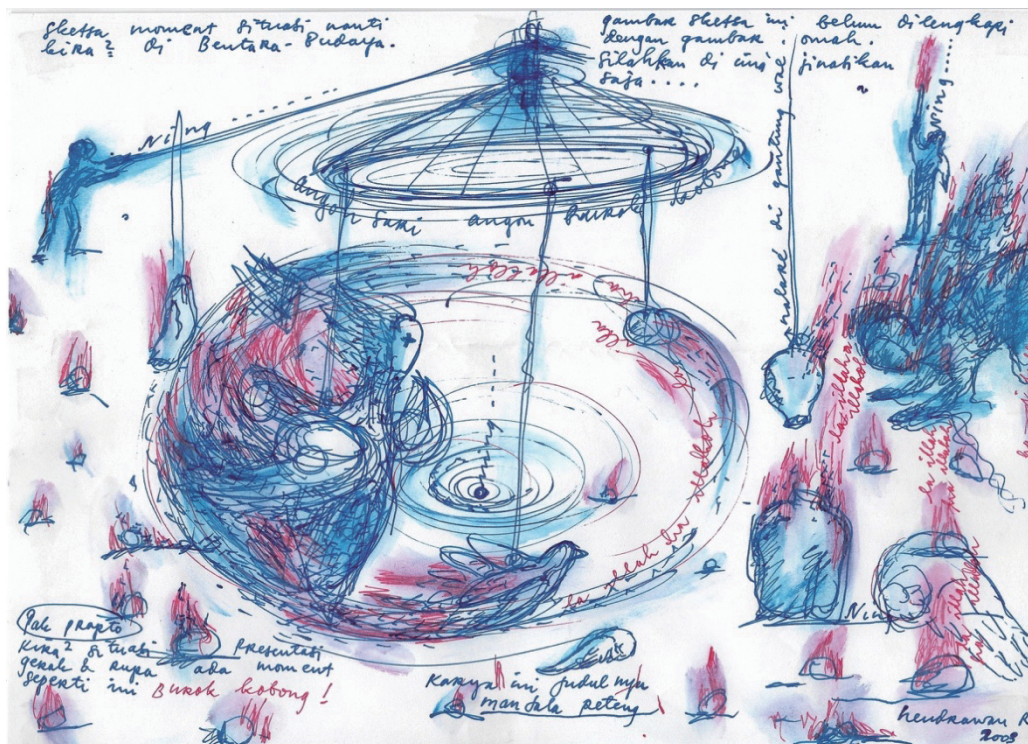 sketsa moment situasi nanti
kira² di Bentara-Budaya.
gambar sketsa ini belum dilengkapi
dengan gambar omah.
silahkan di jinatikan
saja....
Ning
Ning....
angon sari angon kobong
di gantung wae..
illa
allah
la illah ha illallah
la illah
la illah
Ning
Ning
Pak prapto
kira² situasi presentasi
gerak & rupa ada moment
seperti ini Burok kobong!
karya ini judulnya
mandala peteng
hendrawan R
2003